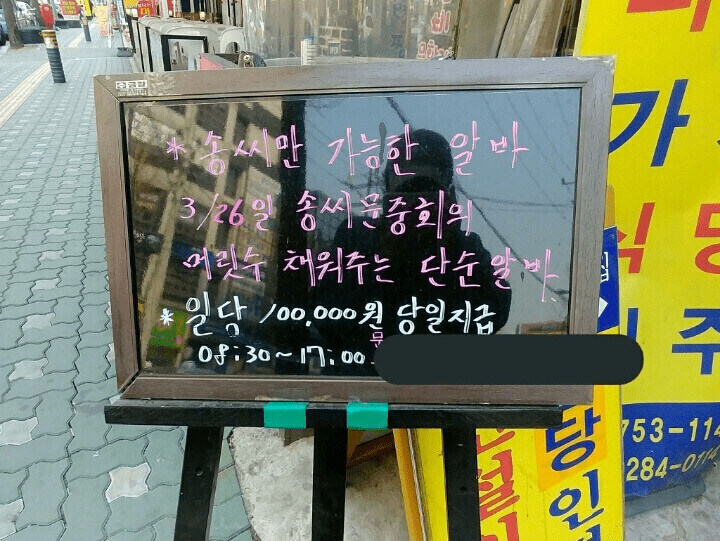 * 송씨만 가능한 알바
3/26일 송씨문중회의
머릿수 채워주는 단순알바.
* 일당 100,000원 당일지급
08:30~17:00
문
가
식당
주
당
인
753-114
284-0114